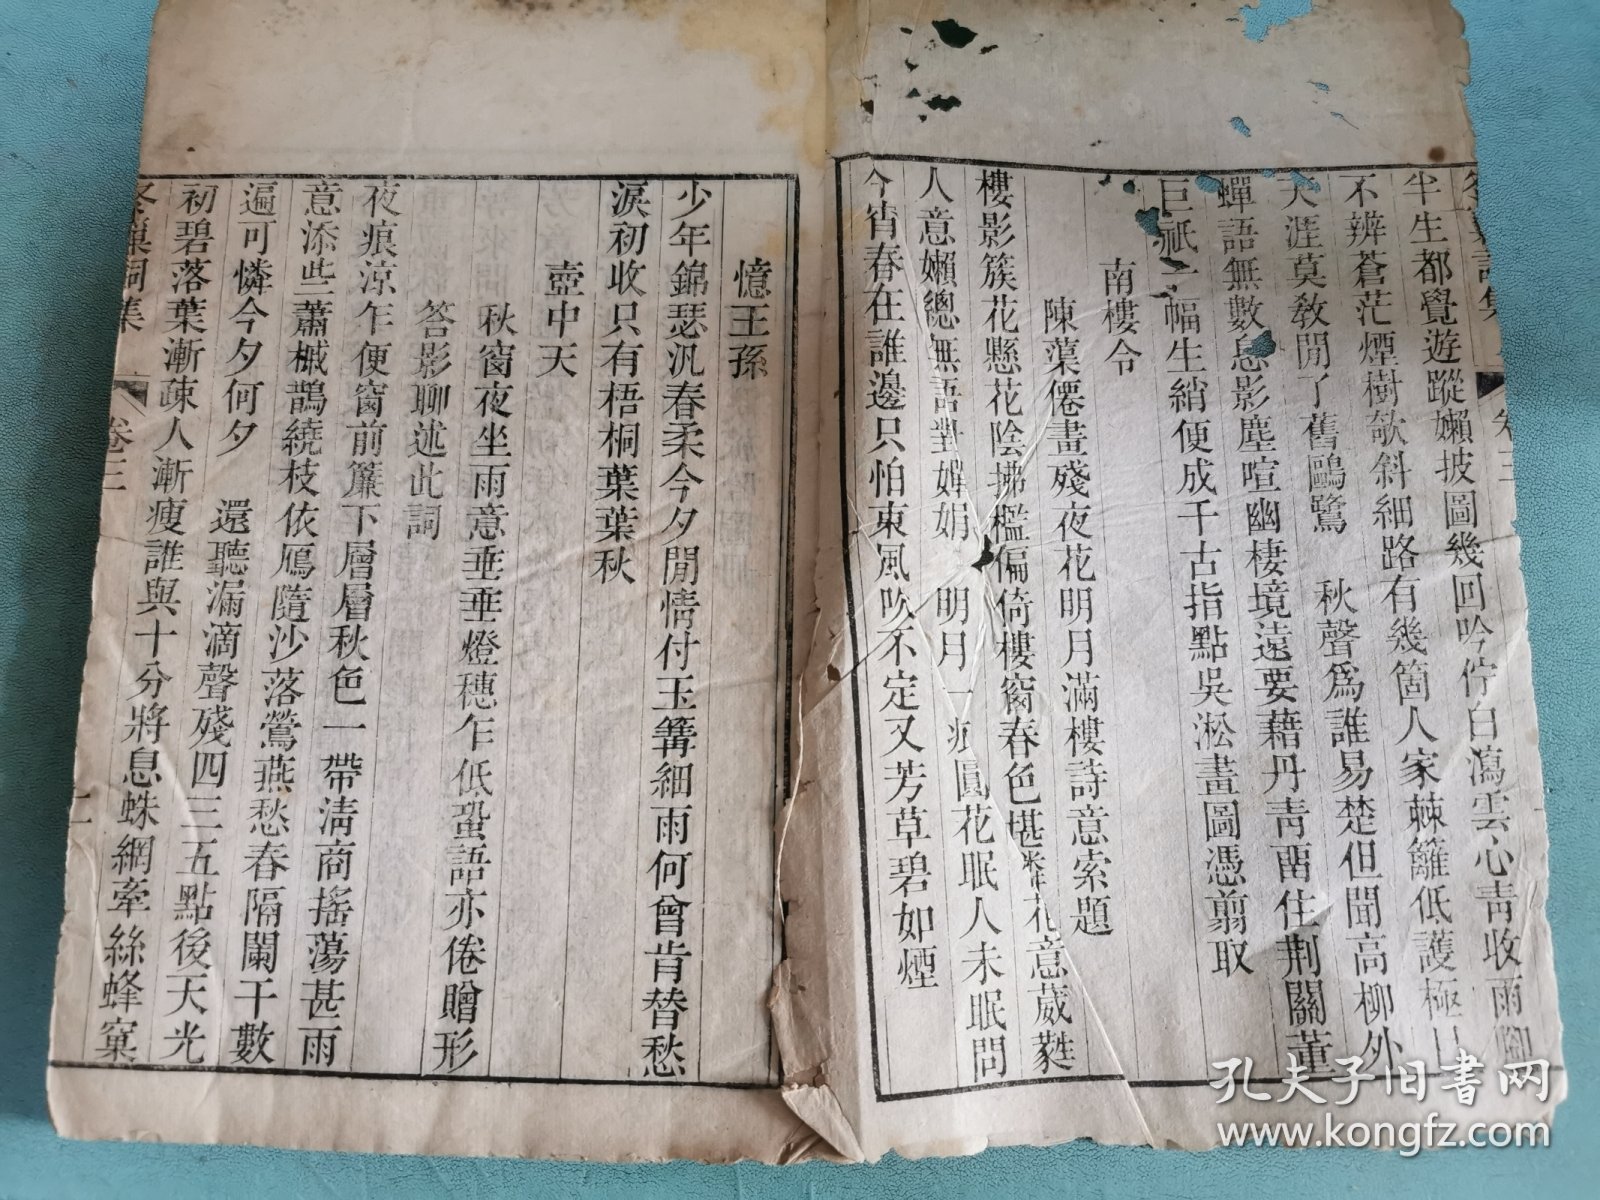 半生都覺遊蹤嬾披圖幾回吟佇白瀉雲心靑收雨腳
不辨蒼茫煙樹欹斜細路有幾箇人家棘籬低護極目
天涯莫敎閒了舊鷗鷺　秋聲爲誰易楚但聞高柳外
蟬語無數息影塵喧幽棲境遠要藉丹靑畱住荆關董
巨祇一幅生綃便成千古指點吳淞畫圖憑翦取
南樓令
陳葉僊畫殘夜花明月滿樓詩意索題
樓影簇花懸花陰拂檻偏倚樓窗春色堪憐花意葳蕤
人意嬾總無語對嬋娟　明月一痕圓花眠人未眠問
今宵春在誰邊只怕東風吹不定又芳草碧如煙
憶王孫
少年錦瑟汎春柔今夕閒情付玉篝細雨何曾肯替愁
淚初收只有梧桐葉葉秋
壺中天
秋窗夜坐雨意垂垂燈穗乍低蛩語亦倦贈形
答影聊述此詞
夜痕涼乍便窗前簾下層層秋色一帶淸商搖蕩甚雨
意添些蕭槭鵲繞枝依鴈隨沙落鶯燕愁春隔闌干數
遍可憐今夕何夕　還聽漏滴聲殘四三五點後天光
初碧落葉漸疎人漸瘦誰與十分將息蛛網牽絲蜂窠
卷三
卷三
孔夫子旧书网
www.kongfz.com